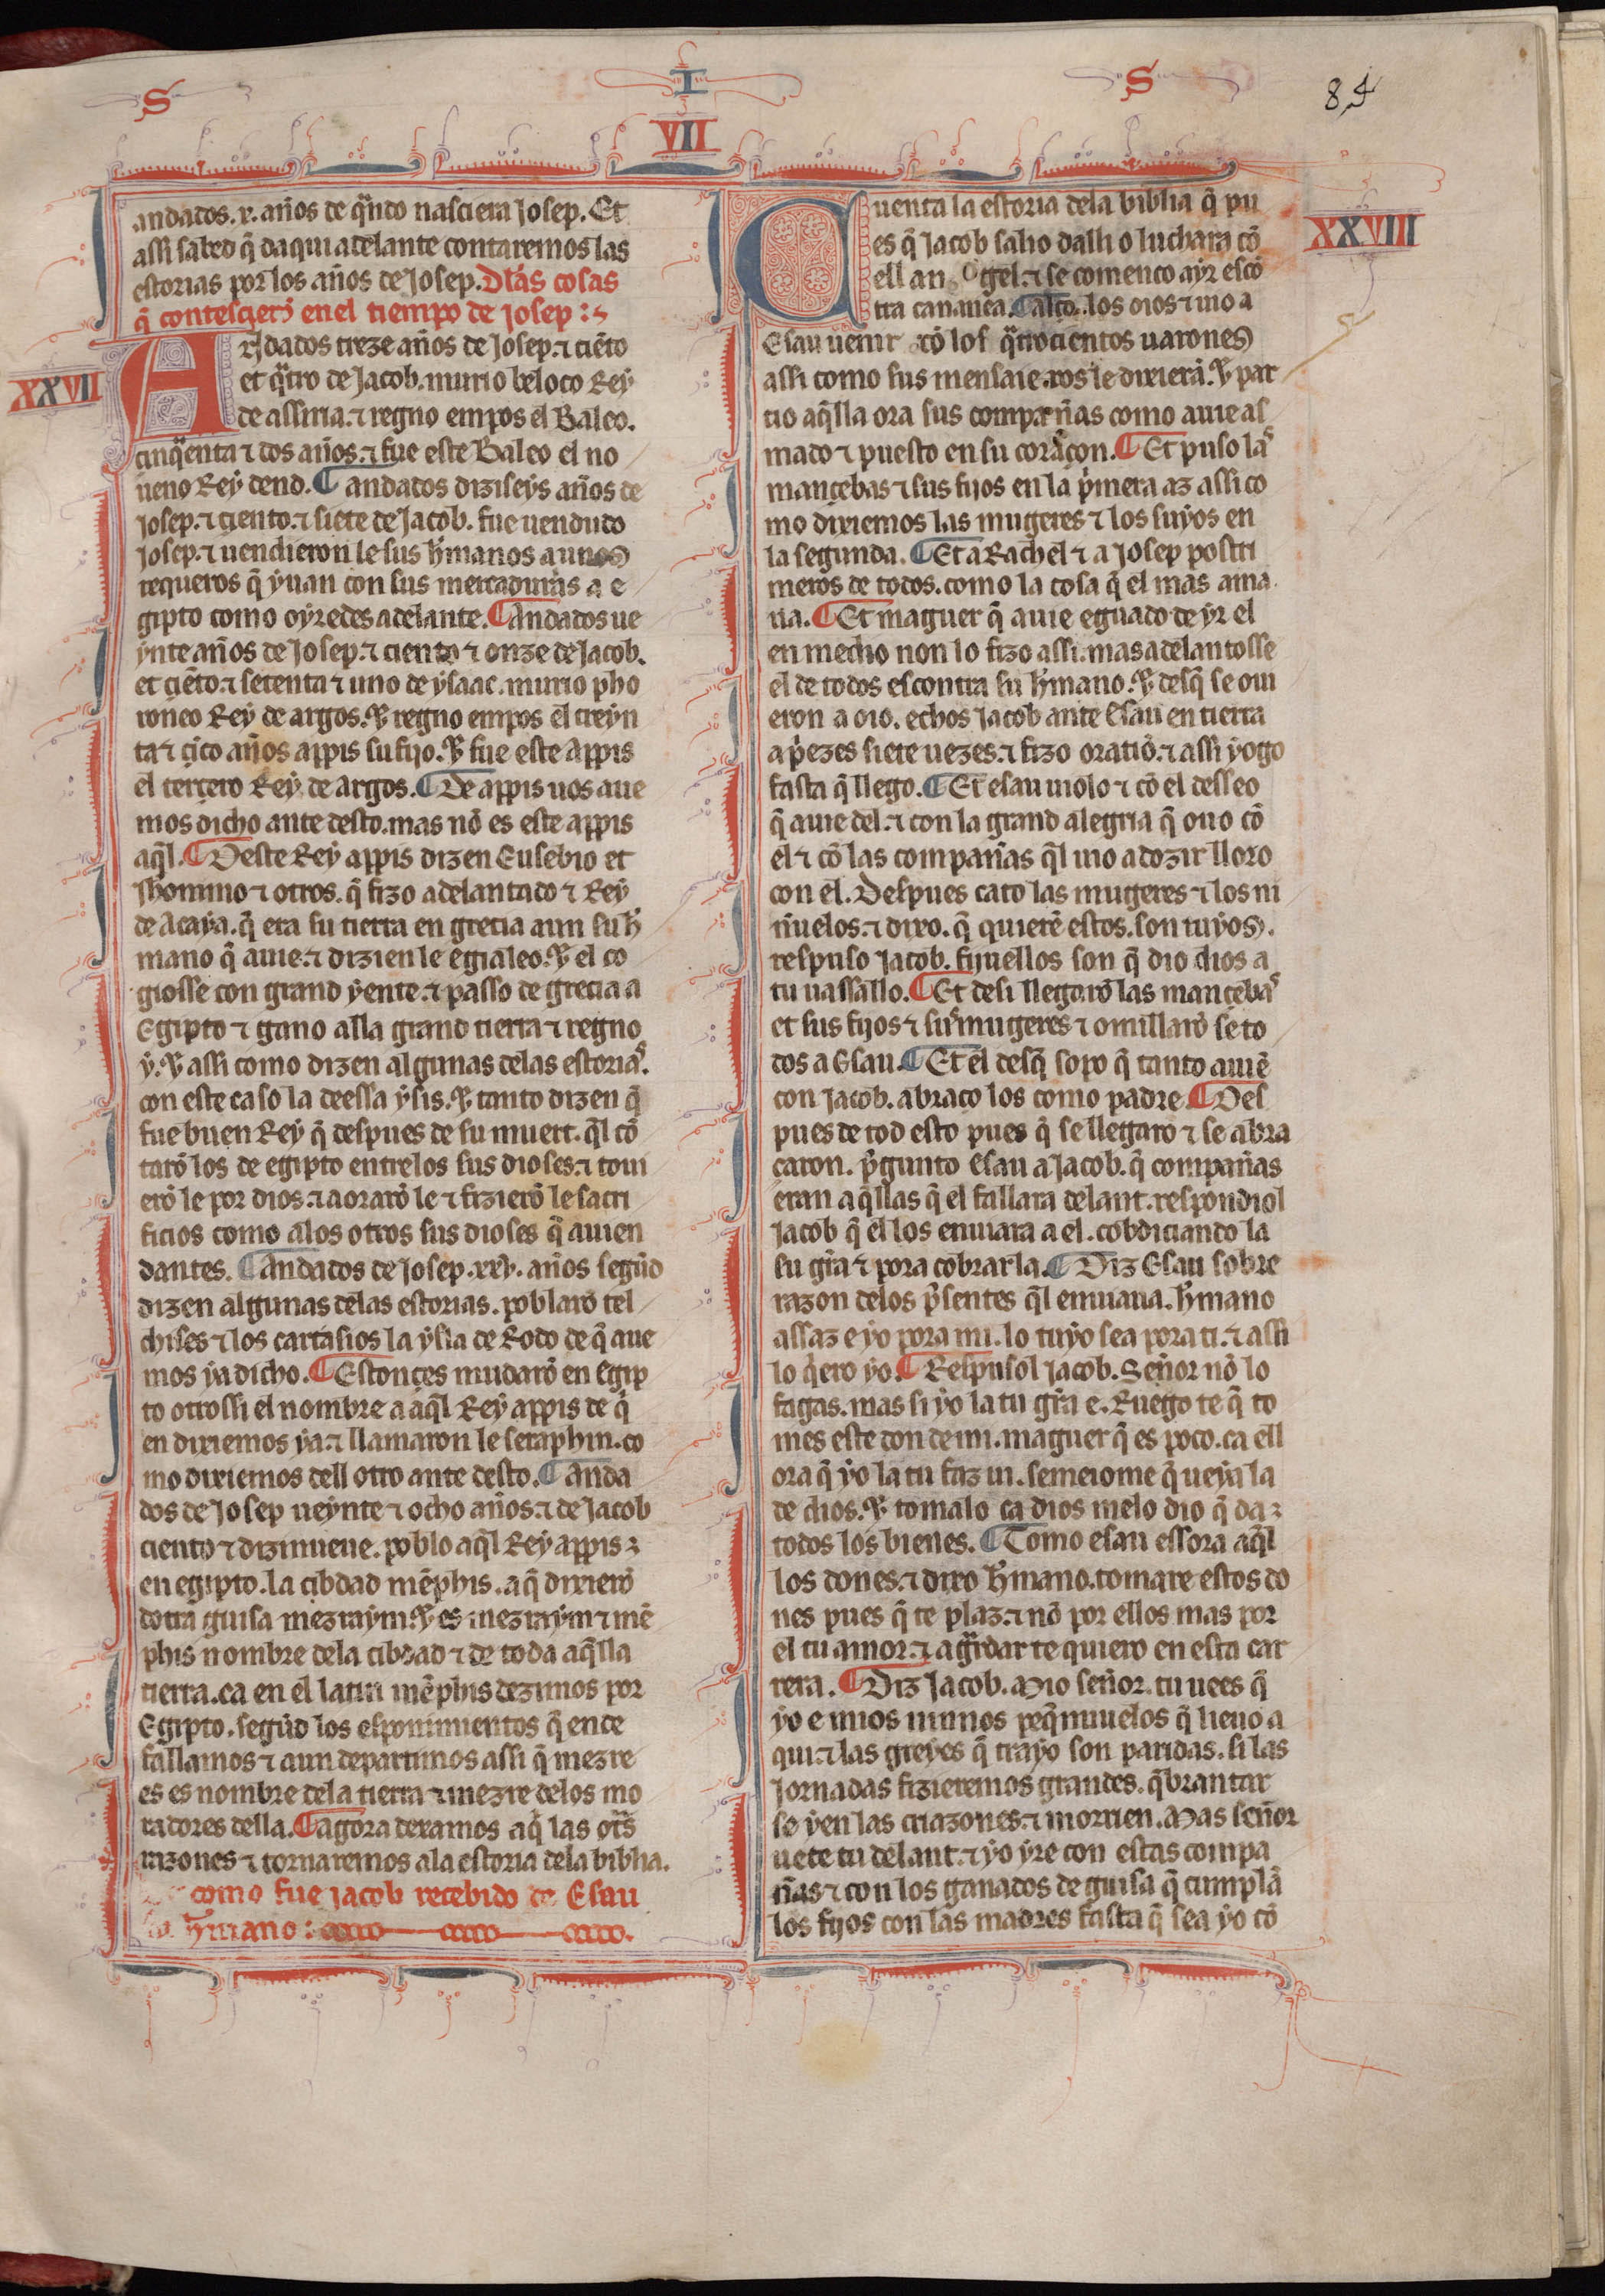 S
I
S
84
VII
andados .x. años de q̃ndo nasciera Josep. Et
assi sabed q̃ daqui adelante contaremos las
estorias por los años de Josep. Dlas cosas
q̃ contescierõ en el tiempo de Josep :~
XXVII
Andados treze años de Josep. ⁊ ciẽto
et q̃tro de Jacob. murio beloco Rey
de assiria. ⁊ regno empos el Baleo.
cinq̃enta ⁊ dos años. ⁊ fue este Baleo el no
ueno Rey dend. ¶ andados diziseys años de
Josep. ⁊ ciento. ⁊ siete de Jacob. fue uendudo
Josep. ⁊ uendieron le sus h̃manos a unos
requeros q̃ yuan con sus mercaduras a e
gipto como oyredes adelante. ¶ Andados ue
ynte años de Josep. ⁊ ciento ⁊ onze de Jacob.
et ciẽto. ⁊ setenta ⁊ uno de ysaac. murio pho
roneo Rey de argos. ⁊ regno empos el treyn
ta ⁊ cĩco años appis su fijo. ⁊ fue este appis
el tercero Rey de argos. ¶ De appis uos aue
mos dicho ante desto. mas nõ es este appis
aq̃l. ¶ Deste Rey appis dizen Eusebio et
Jheronimo ⁊ otros. q̃ fizo adelantado ⁊ Rey
de Acaya. q̃ era su tierra en grecia a un su h̃
mano q̃ auie. ⁊ dizien le egialeo. ⁊ el co
giosse con grand yente. ⁊ passo de grecia a
Egipto ⁊ gano alla grand tierra ⁊ regno
y. ⁊ assi como dizen algunas delas estorias.
con este caso la deessa ysis. ⁊ tanto dizen q̃
fue buen Rey q̃ despues de su muert. q̃l cõ
tarõ los de egipto entrelos sus dioses. ⁊ toui
erõ le por dios. ⁊ aorarõ le ⁊ fizierõ le sacri
ficios como alos otros sus dioses q̃ auien
dantes. ¶ Andados de Josep .xxv. años segũd
dizen algunas delas estorias. poblarõ tel
chises ⁊ los cartasios la ysla de Rodo de q̃ aue
mos ya dicho. ¶ Estonçes mudarõ en Egip
to otrossi el nombre a aq̃l Rey appis de q̃
en dixiemos ya. ⁊ llamaron le seraphin. co
mo dixiemos dell otro ante desto. ¶ Anda
dos de Josep ueynte ⁊ ocho años. ⁊ de Jacob
ciento ⁊ dizinueue. poblo aq̃l Rey appis
en egipto. la cibdad mẽphis. a q̃ dixierõ
dotra guisa mezraym. ⁊ es mezraym ⁊ mẽ
phis nombre dela cibdad ⁊ de toda aq̃lla
tierra. ca en el latin mẽphis dezimos por
Egipto. segũd los esponimientos q̃ ende
fallamos ⁊ aun departimos assi q̃ mezre
es es nombre dela tierra ⁊ mezre delos mo
radores della. ¶ agora dexamos aq̃ las otr̃s
razones ⁊ tornaremos ala estoria dela biblia.
como fue jacob recebido de Esau
h̃mano :
XXVIII
Cuenta la estoria dela biblia q̃ pu
es q̃ Jacob salio dalli o luchara cõ
ell angel. ⁊ se comenco a yr escõ
tra cananea. ¶ alço los oios ⁊ uio a
Esau uenir cõ los q̃trocientos uarones
assi como sus mensaieros le dixierã. ⁊ par
tio aq̃lla ora sus compañas como auie as
mado ⁊ puesto en su coraçon. ¶ Et puso las
mançebas ⁊ sus fijos en la p̃mera az assi co
mo dixiemos las mugeres ⁊ los suyos en
la segunda. ¶ Et a Rachel ⁊ a Josep postri
meros de todos. como la cosa q̃ el mas ama
ua. ¶ Et maguer q̃ auie eguado de yr el
en medio non lo fizo assi. mas adelantosse
el de todos escontra su h̃mano. ⁊ desq̃ se oui
eron a oio. echos Jacob ante Esau en tierra
a p̃ezes siete uezes. ⁊ fizo oratiõ. ⁊ assi yogo
fasta q̃ llego. ¶ Et esau uiolo ⁊ cõ el desseo
q̃ auie del. ⁊ con la grand alegria q̃ ouo cõ
el ⁊ cõ las compañas q̃l uio adozir lloro
con el. Despues cato las mugeres ⁊ los ni
ñuelos. ⁊ dixo. q̃ quierẽ estos. son tuyos.
respuso Jacob. fijuellos son q̃ dio dios a
tu uassallo. ¶ Et desi llegarõ las mançebas
et sus fijos ⁊ sus mugeres ⁊ omillarõ se to
dos a Esau. ¶ Et el desq̃ sopo q̃ tanto auiẽ
con Jacob. abraço los como padre. ¶ Des
pues de tod esto pues q̃ se llegarõ ⁊ se abra
caron. p̃gunto Esau a Jacob. q̃ compañas
eran aq̃llas q̃ el fallara delant. respondiol
Jacob q̃ el los enuiara a el. cobdiciando la
su gr̃a ⁊ pora cobrarla. ¶ Diz Esau sobre
razon delos p̃sentes q̃l enuiaua. h̃mano
assaz e yo pora mi. lo tuyo sea pora ti. ⁊ assi
lo q̃ero yo. ¶ Respusol Jacob. Señor nõ lo
fagas. mas si yo la tu gr̃a e. Ruego te q̃ to
mes este don de mi. maguer q̃ es poco. ca ell
ora q̃ yo la tu faz ui. semeiome q̃ ueya la
de dios. ⁊ tomalo ca dios melo dio q̃ da
todos los bienes. ¶ Tomo esau essora aq̃l
los dones. ⁊ dixo h̃mano. tomare estos do
nes pues q̃ te plaz. ⁊ nõ por ellos mas por
el tu amor. ⁊ agr̃dar te quiero en esta car
rera. ¶ Diz Jacob. Mio señor. tu uees q̃
yo e mios ninnos peq̃nnuelos q̃ lieuo a
qui. ⁊ las greyes q̃ trayo son paridas. si las
Jornadas fizieremos grandes. q̃brantar
so yen las criazones. ⁊ morrien. Mas señor
uete tu delant. ⁊ yo yre con estas compa
ñas ⁊ con los ganados de guisa q̃ cumplã
los fijos con las madres fasta q̃ sea yo cõ